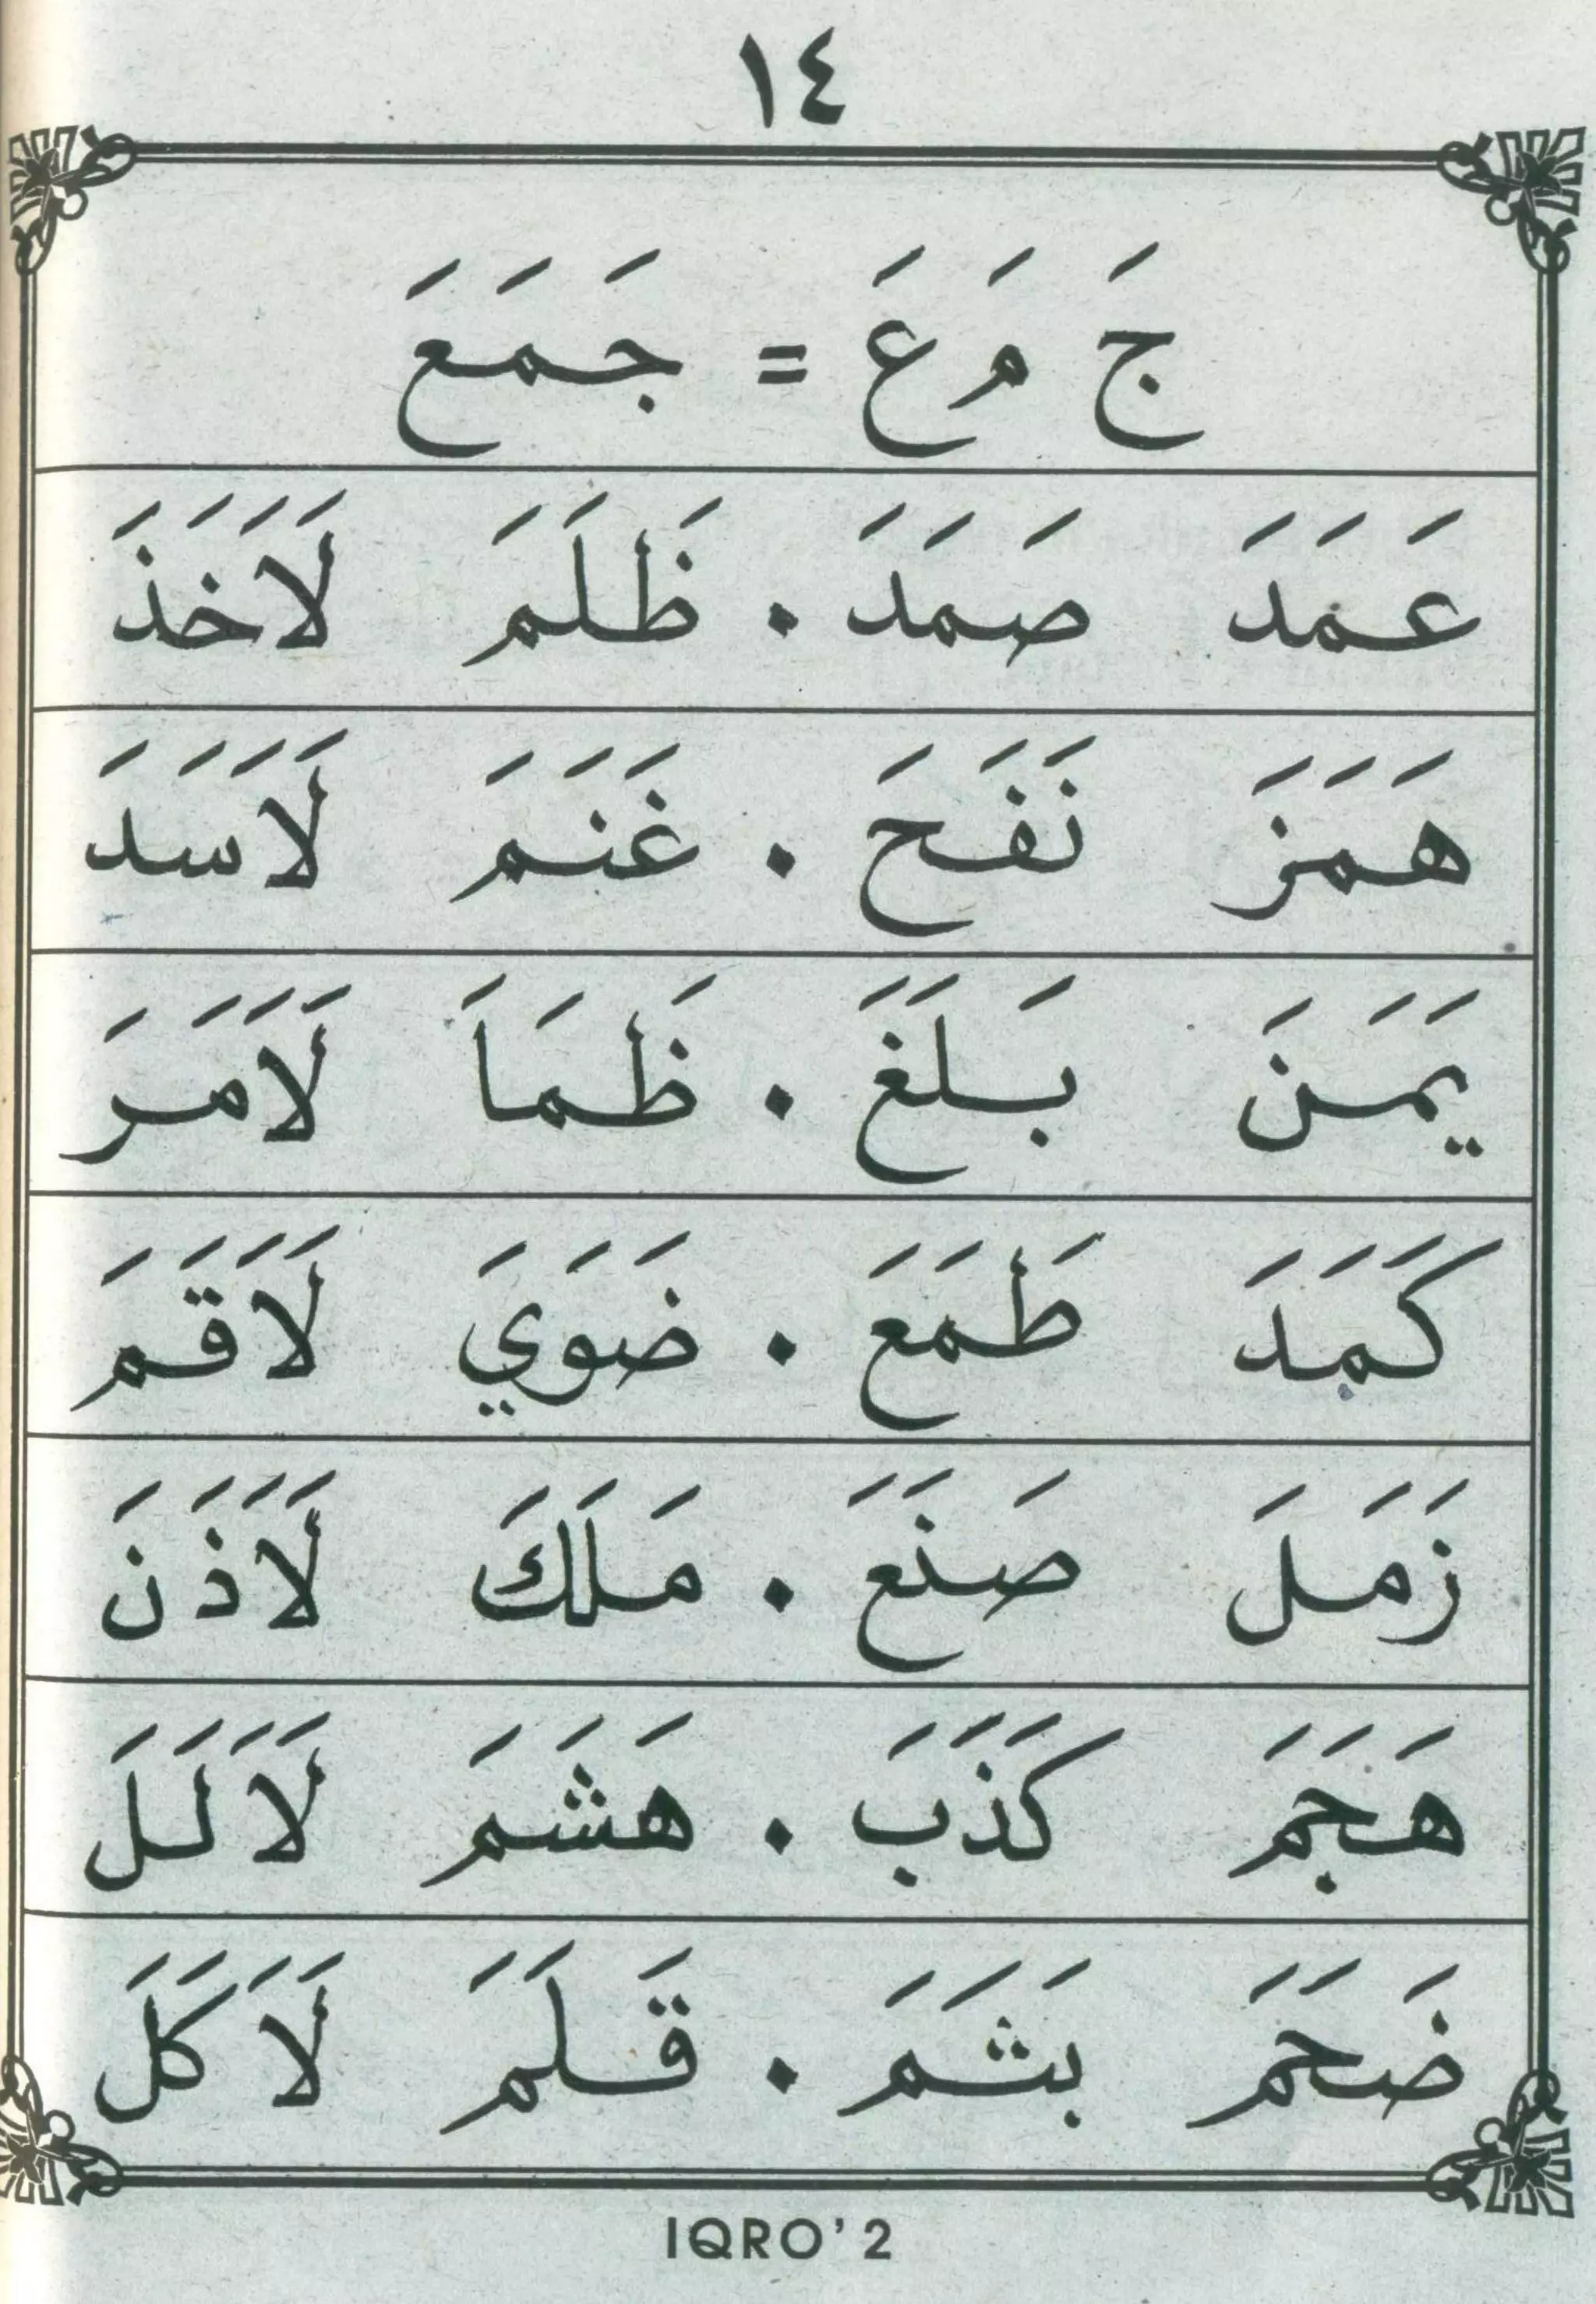 ١٤
جَ مَ عَ = جَمَعَ
عَمَدَ صَمَدَ . ظَلَمَ لَاَخَذَ
هَمَزَ نَفَحَ . غَنَمَ لَاَسَدَ
يَمَنَ بَلَغَ . ظَمَاَ لَاَمَرَ
كَمَدَ طَمَعَ . ضَوَيَ لَاَقَمَ
زَمَلَ صَنَعَ . مَلَكَ لَاَذَنَ
هَجَمَ كَذَبَ . هَشَمَ لَاَلَلَ
ضَحَمَ بَشَمَ . قَلَمَ لَاَكَلَ
IQRO'2